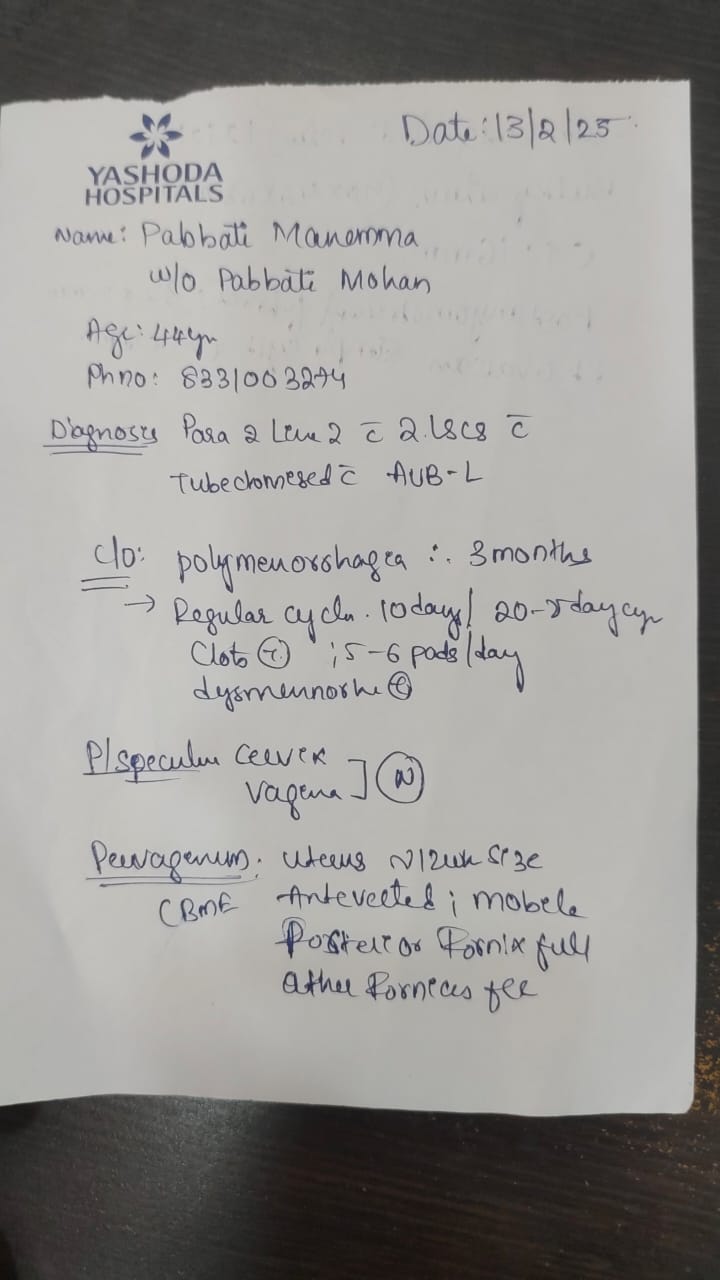 Date: 13/2/25
YASHODA
HOSPITALS
Name: Pabbati Manemma
w/o Pabbati Mohan
Age: 44yr
Ph no: 8331003274
Diagnosis Para 2 Live 2 c̅ 2.LSCS c̅
Tubectomesed c̅ AUB-L
C/o: polymenorrhagea ∴ 3 months
→ Regular cycle. 10 days/ 20-25 day cyc
Clots (+) ; 5-6 pads/day
dysmennorhe (+)
P/speculum Cervex
Vagena ] (N)
Pervagenum: Uterus ~12wk size
CBME Anteverted ; mobele
Posterior Fornix full
Other Forneces fee